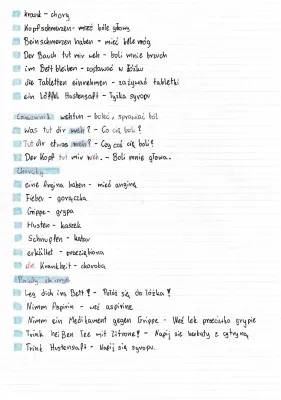 krank - chory
Kopfschmerzen - mieć bóle głowy
Beinschmerzen haben - mieć bóle nóg
Der Bauch tut mir weh - boli mnie brzuch
im Bett bleiben - zostawać w łóżku
die Tabletten einnehmen - zażywać tabletki
ein Löffel Hustensaft - łyżka syropu
Czasownik wehtun - boleć, sprawiać ból
Was tut dir weh? - Co cię boli?
Tut dir etwas weh? - Czy coś cię boli?
Der Kopf tut mir weh. - Boli mnie głowa.
Choroby
eine Angina haben - mieć anginę
Fieber - gorączka
Grippe - grypa
Husten - kaszel
Schnupfen - katar
erkältet - przeziębiona
die Krankheit - choroba
Leg dich ins Bett! - Połóż się do łóżka!
Nimm Aspirin - weź aspirinę
Nimm ein Medikament gegen Grippe - Weź lek przeciwko grypie
Trink heißen Tee mit Zitrone! - Napij się herbaty z cytryną
Trink Hustensaft - Napij się syropu.